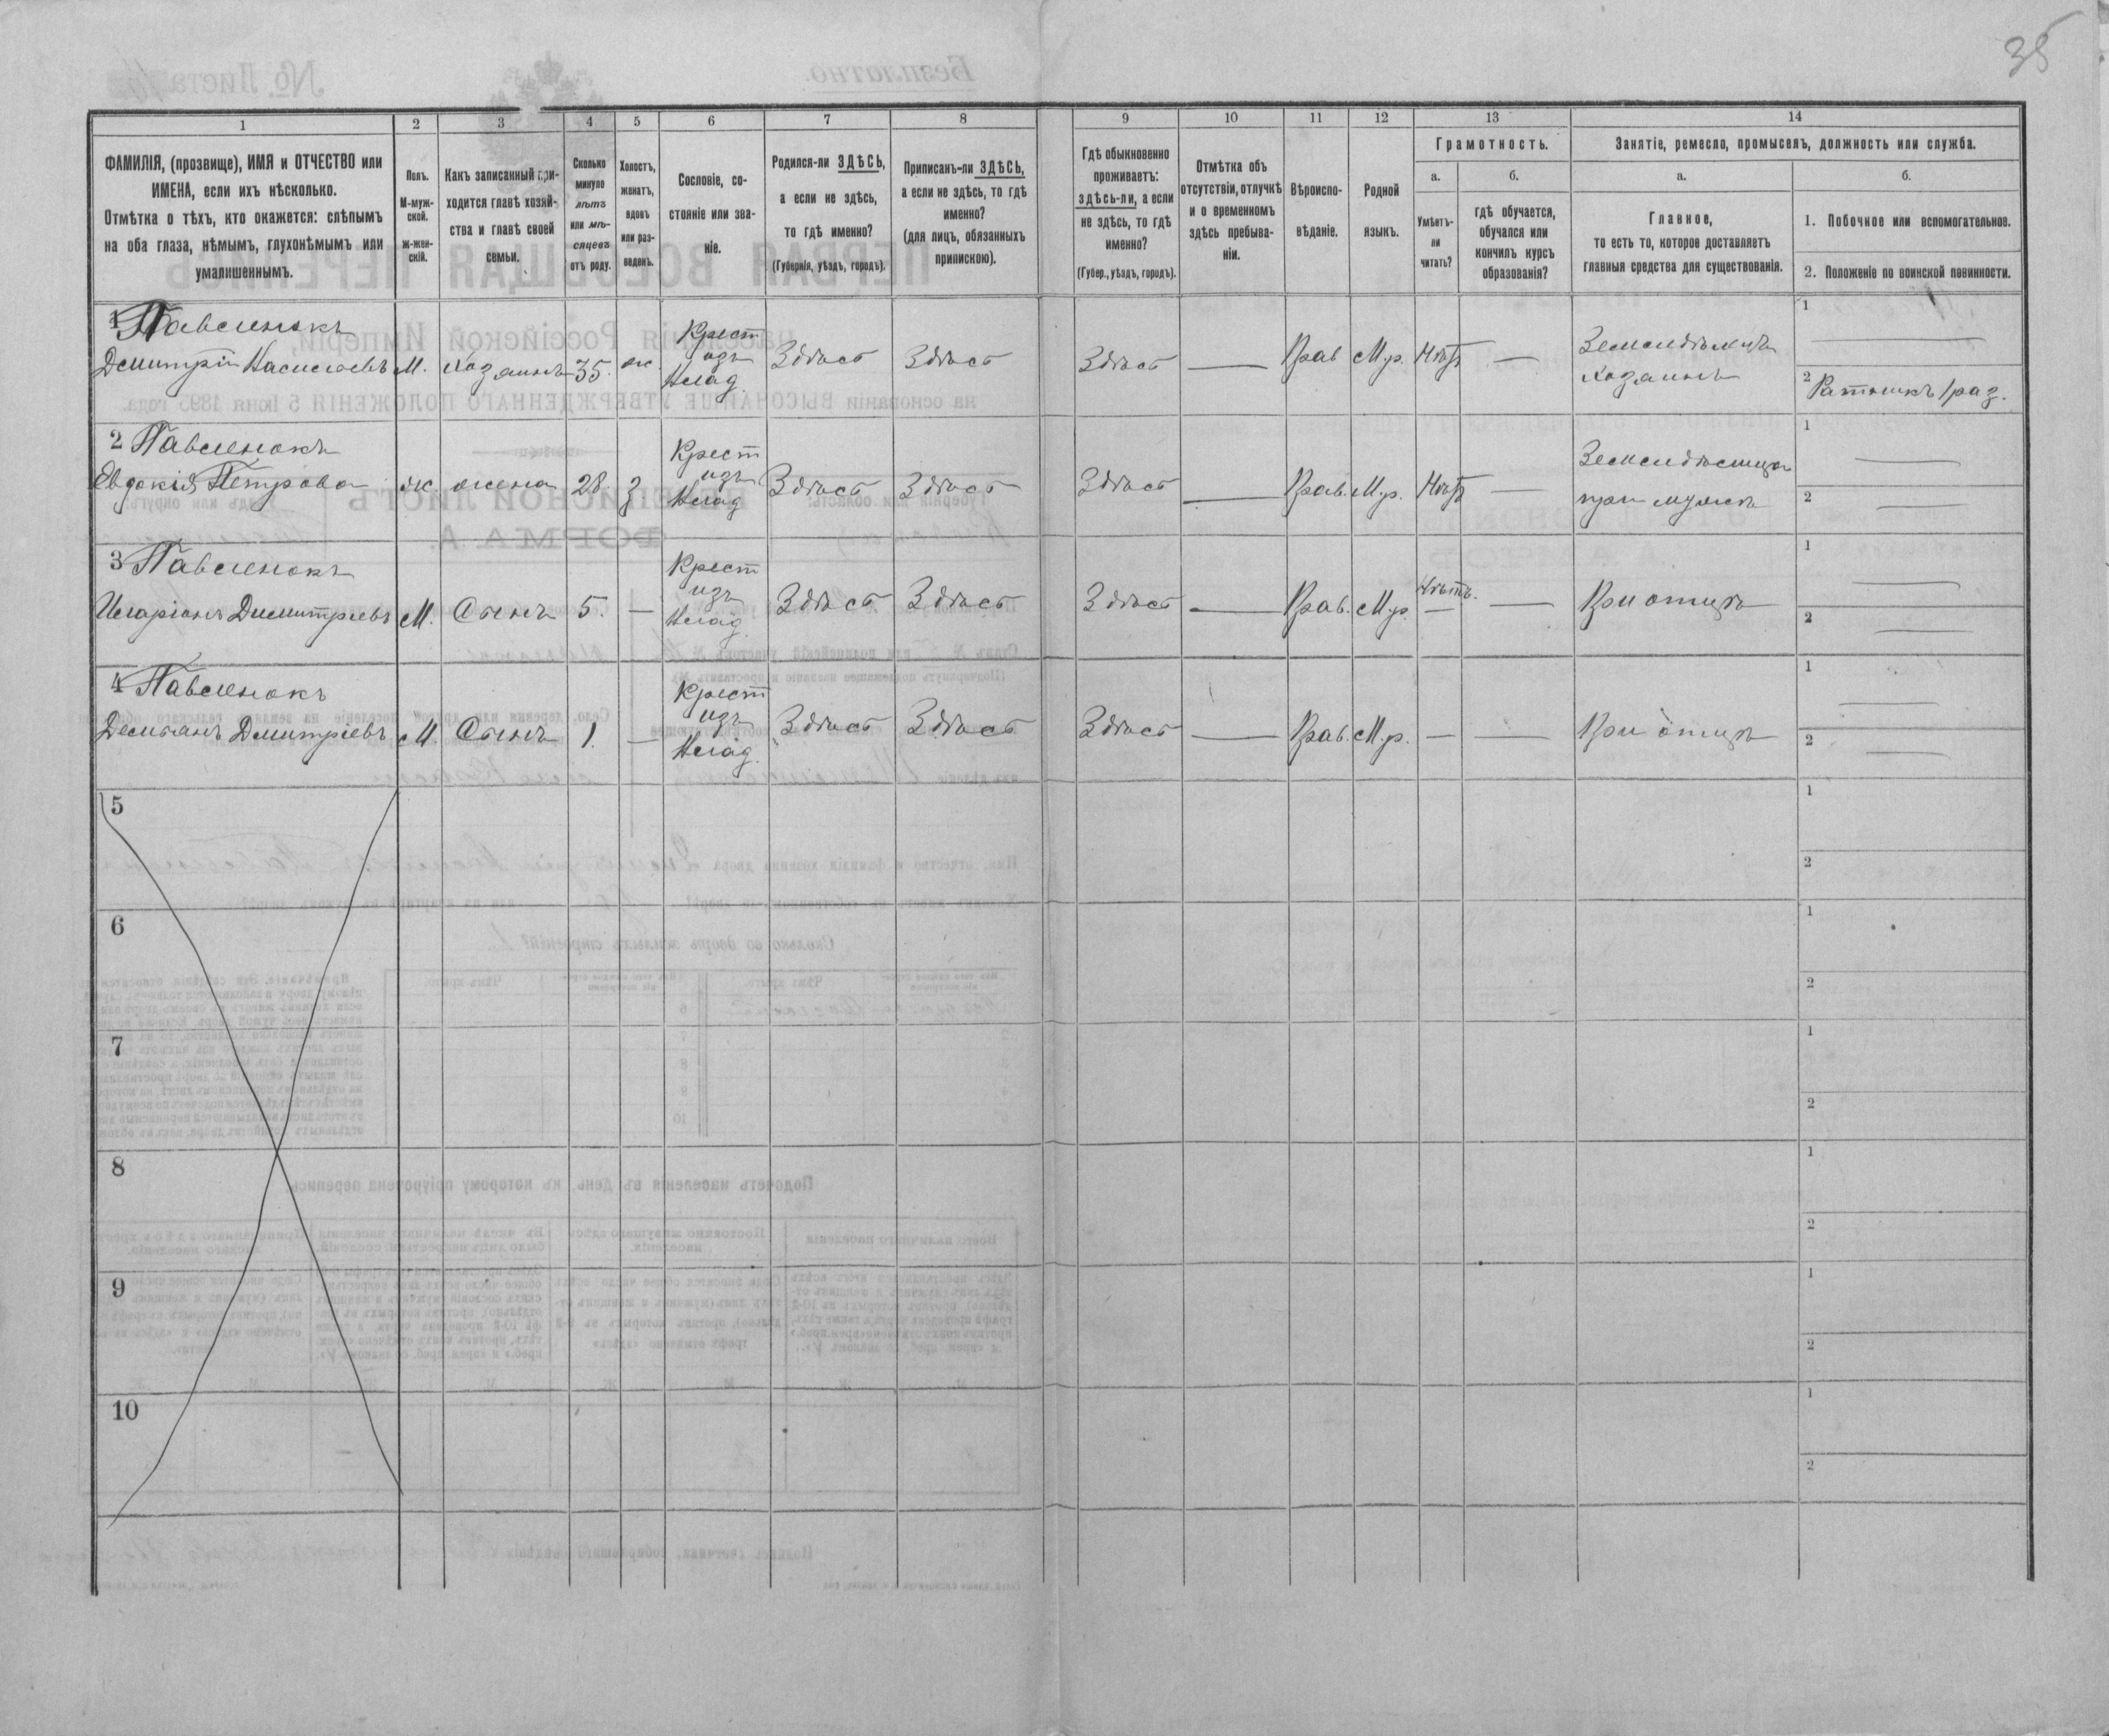 35
1
2
3
4
5
6
7
8
9
10
11
12
13
14
ФАМИЛІЯ, (прозвище), ИМЯ и ОТЧЕСТВО или
ИМЕНА, если ихъ нѣсколько.
Отмѣтка о тѣхъ, кто окажется: слѣпымъ
на оба глаза, нѣмымъ, глухонѣмымъ или
умалишеннымъ.
Полъ.
М-муж-
ской.
Ж-жен-
скій.
Какъ записанный при-
ходится главѣ хозяй-
ства и главѣ своей
семьи.
Сколько
минуло
лѣтъ
или мѣ-
сяцевъ
отъ роду.
Холостъ,
женатъ,
вдовъ
или раз-
веденъ.
Сословіе, со-
стояніе или зва-
ніе.
Родился-ли ЗДѢСЬ,
а если не здѣсь,
то гдѣ именно?
(Губернія, уѣздъ, городъ).
Приписанъ-ли ЗДѢСЬ,
а если не здѣсь, то гдѣ
именно?
(для лицъ, обязанныхъ
припискою).
Гдѣ обыкновенно
проживаетъ:
здѣсь-ли, а если
не здѣсь, то гдѣ
именно?
(Губер., уѣздъ, городъ).
Отмѣтка объ
отсутствіи, отлучкѣ
и о временномъ
здѣсь пребыва-
ніи.
Вѣроиспо-
вѣданіе.
Родной
языкъ.
Грамотность.
а.
Умѣетъ-
ли
читать?
б.
гдѣ обучается,
обучался или
кончилъ курсъ
образованія?
Занятіе, ремесло, промыселъ, должность или служба.
а.
Главное,
то есть то, которое доставляетъ
главныя средства для существованія.
б.
1. Побочное или вспомогательное.
2. Положеніе по воинской повинности.
1 Павленокъ
Димитрій М. Хозяинъ 35. ж. Крест изъ Влад. Здѣсь Здѣсь Здѣсь — Прав М.р. Нѣтъ — Земледѣлецъ хозяинъ
1 —
2 Ратникъ 1 раз.
2 Павленокъ
Евдокія Петрова ж. жена 28. з Крест изъ Влад Здѣсь Здѣсь Здѣсь — Прав. М.р. Нѣтъ — при мужѣ
1 —
2 —
3 Павленокъ
Иларіонъ Димитріевъ М. Сынъ 5. — Крест изъ Влад. Здѣсь Здѣсь Здѣсь — Прав. М.р. Нѣтъ. — — При отцѣ
1 —
2 —
4 Павленокъ
Демьянъ Димитріевъ М Сынъ 1. — Крест изъ Влад. Здѣсь Здѣсь Здѣсь — Прав. М.р. — — При отцѣ
1 —
2 —
5
1
2
6
1
2
7
1
2
8
1
2
9
1
2
10
1
2